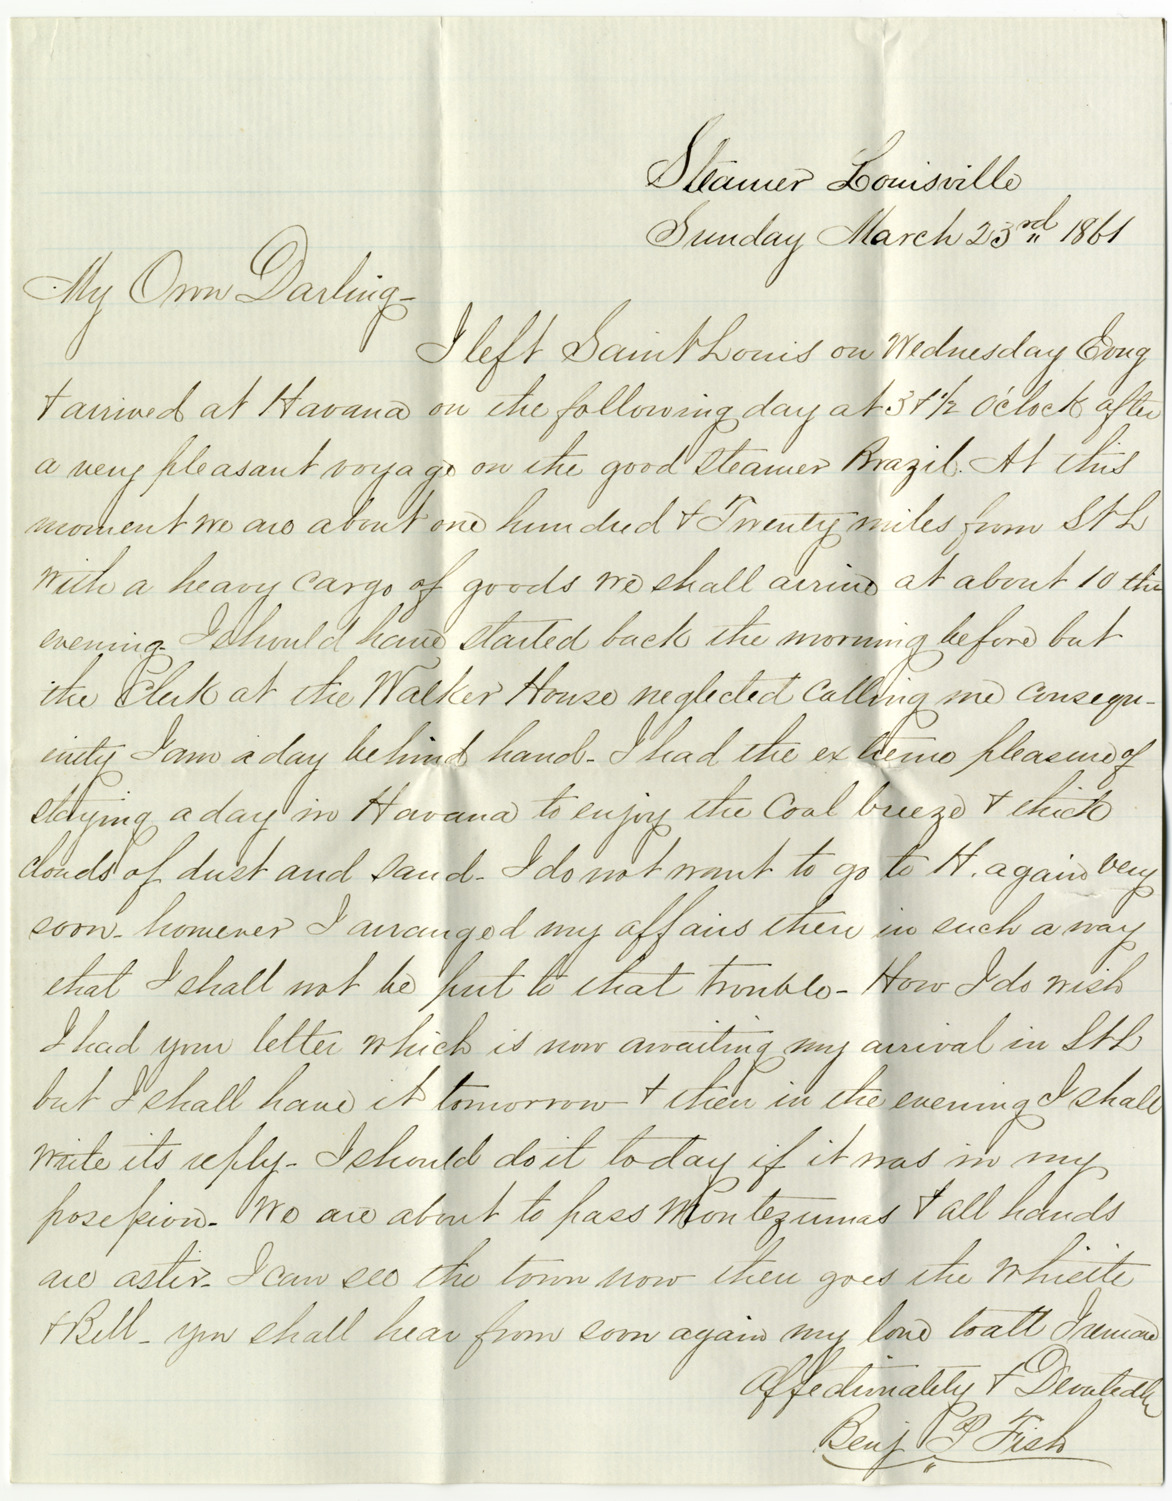 Steamer Louisville
Sunday March 23rd 1861
My Own Darling-
I left Saint Louis on Wednesday Evng
& arrived at Havana on the following day at 3 & 1/2 O'clock after
a very pleasant voyage on the good Steamer Brazil. At this
moment we are about one hundred & Twenty miles from St L
with a heavy cargo of goods we shall arrive at about 10 this
evening. I should have started back the morning before but
the Clerk at the Walker House neglected calling me consequ-
ently I am a day behind hand- I had the extreme pleasure of
staying a day in Havana to enjoy the Coal breeze & thick
clouds of dust and sand- I do not want to go to H. again very
soon- however I arranged my affairs there in such a way
that I shall not be put to that trouble- How I do wish
I had your letter which is now awaiting my arrival in St L
but I shall have it tomorrow & then in the evening I shall
write its reply- I should do it today if it was in my
possession- We are about to pass Montezumas & all hands
are astir- I can see the town now there goes the Whistle
& Bell- you shall hear from soon again my love to all I remain
Affectionately & Devotedly
Benj P Fish